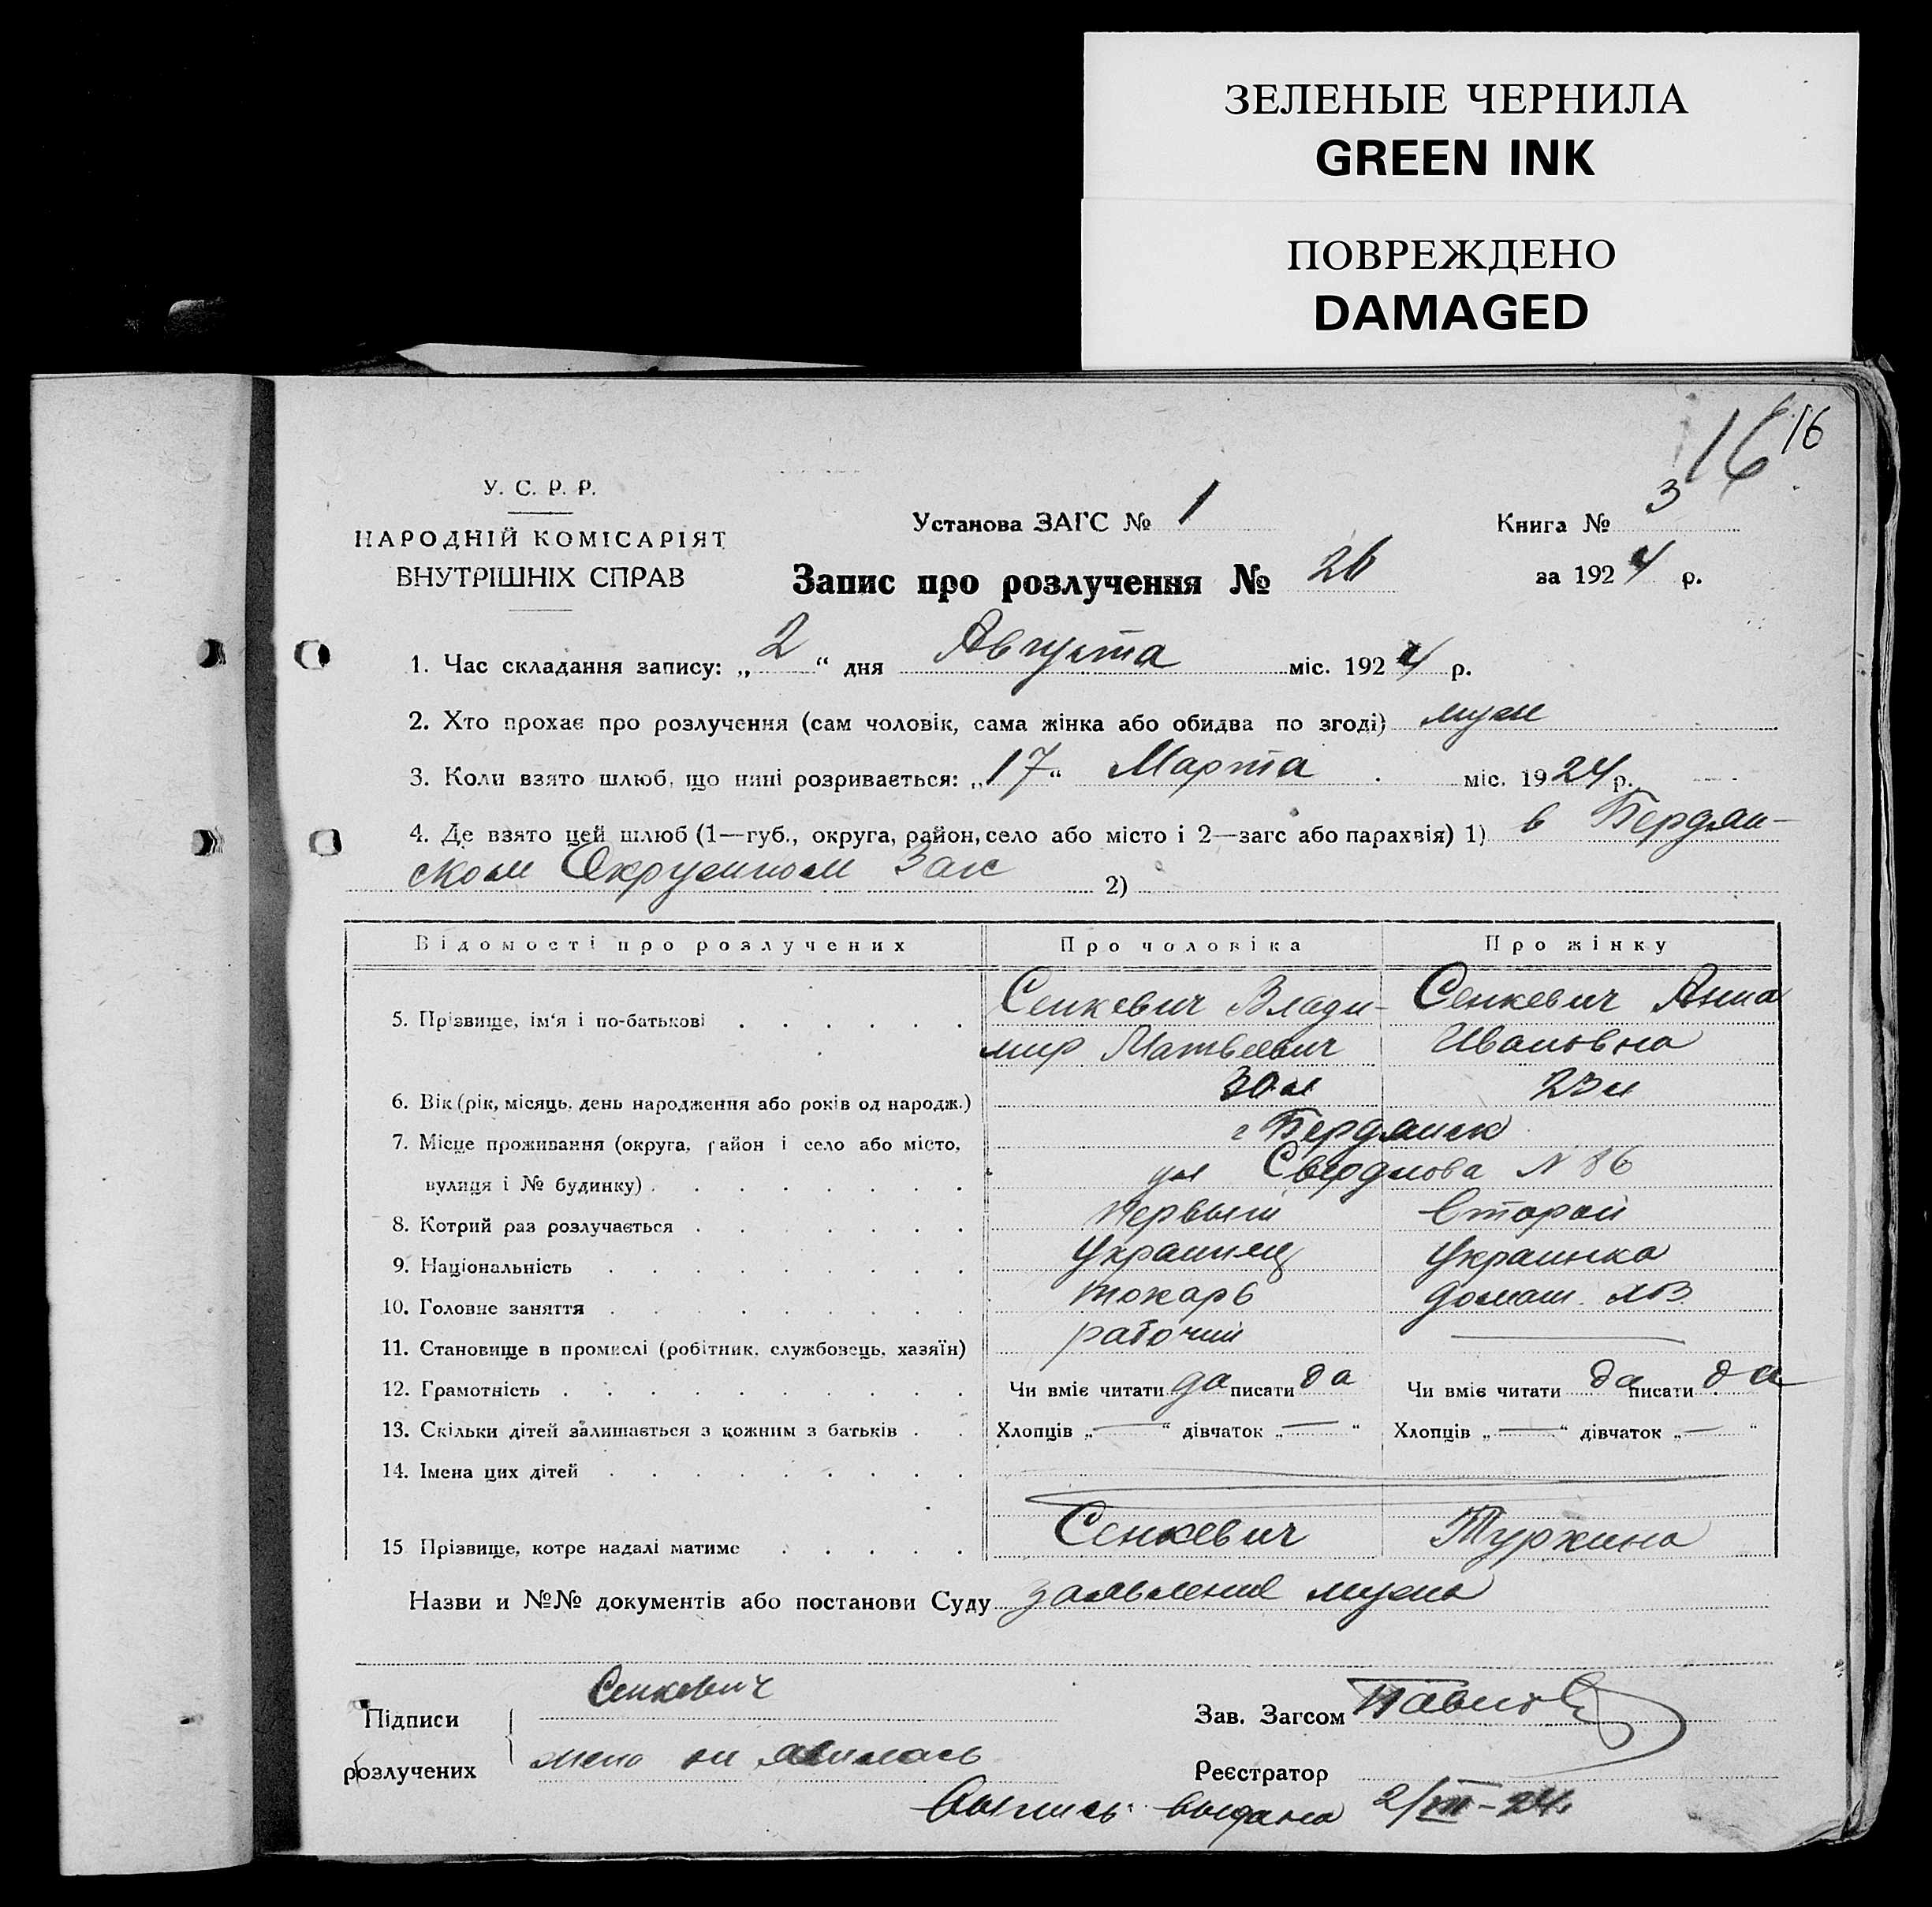 ЗЕЛЕНЫЕ ЧЕРНИЛА
GREEN INK
ПОВРЕЖДЕНО
DAMAGED
16 16
У. С. Р. Р.
НАРОДНІЙ КОМІСАРІЯТ
ВНУТРІШНІХ СПРАВ
Установа ЗАГС № 1
Книга № 3
Запис про розлучення № 26
за 1924 р.
1. Час складання запису: „2“ дня Августа міс. 1924 р.
2. Хто прохає про розлучення (сам чоловік, сама жінка або обидва по згоді) муж
3. Коли взято шлюб, що нині розривається: „17“ Марта міс. 1924 р.
4. Де взято цей шлюб (1—губ., округа, район, село або місто і 2—загс або парахвія) 1) в Бердян-
ском Окружном Загс 2)
Відомості про розлучених Про чоловіка Про жінку
5. Прізвище, ім'я і по-батькові Сенкевич Влади- Сенкевич Анна
мир Матвеевич Ивановна
6. Вік (рік, місяць, день народження або років од народж.) 30 л 23 л
7. Місце проживання (округа, район і село або місто, г Бердянск
вулиця і № будинку) ул Свердлова N 86
8. Котрий раз розлучається первый второй
9. Національність Украинец Украинка
10. Головне заняття токарь домаш. хоз.
11. Становище в промислі (робітник, службовець, хазяїн) рабочий —
12. Грамотність Чи вміє читати да писати да Чи вміє читати да писати да
13. Скільки дітей залишається з кожним з батьків Хлопців „—“ дівчаток „—“ Хлопців „—“ дівчаток „—“
14. Імена цих дітей
15 Прізвище, котре надалі матиме Сенкевич Туркина
Назви и №№ документів або постанови Суду заявление мужа
Підписи Сенкевич Зав. Загсом
розлучених жена не явилась Реєстратор
Выпись выдана 2/VIII-24.